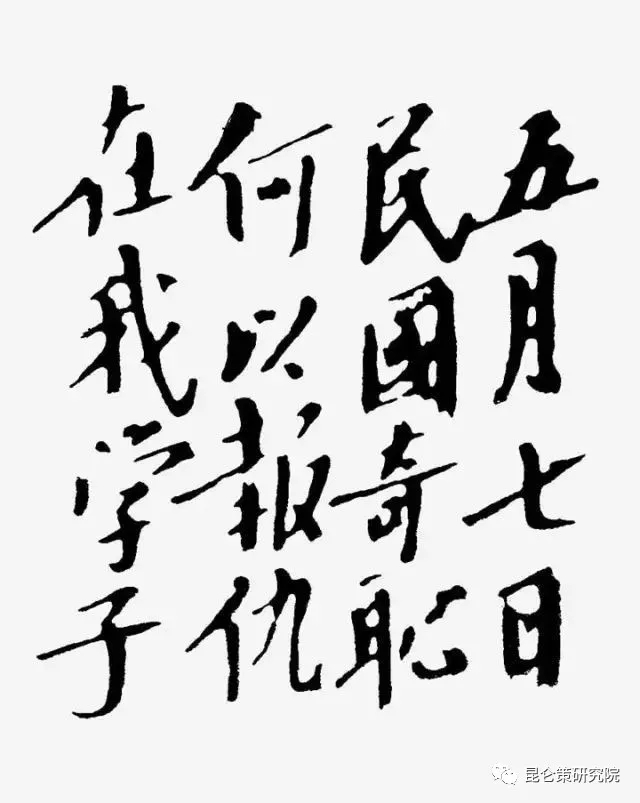 五月七日
民國奇恥
何以報仇
在我学子
昆仑策研究院